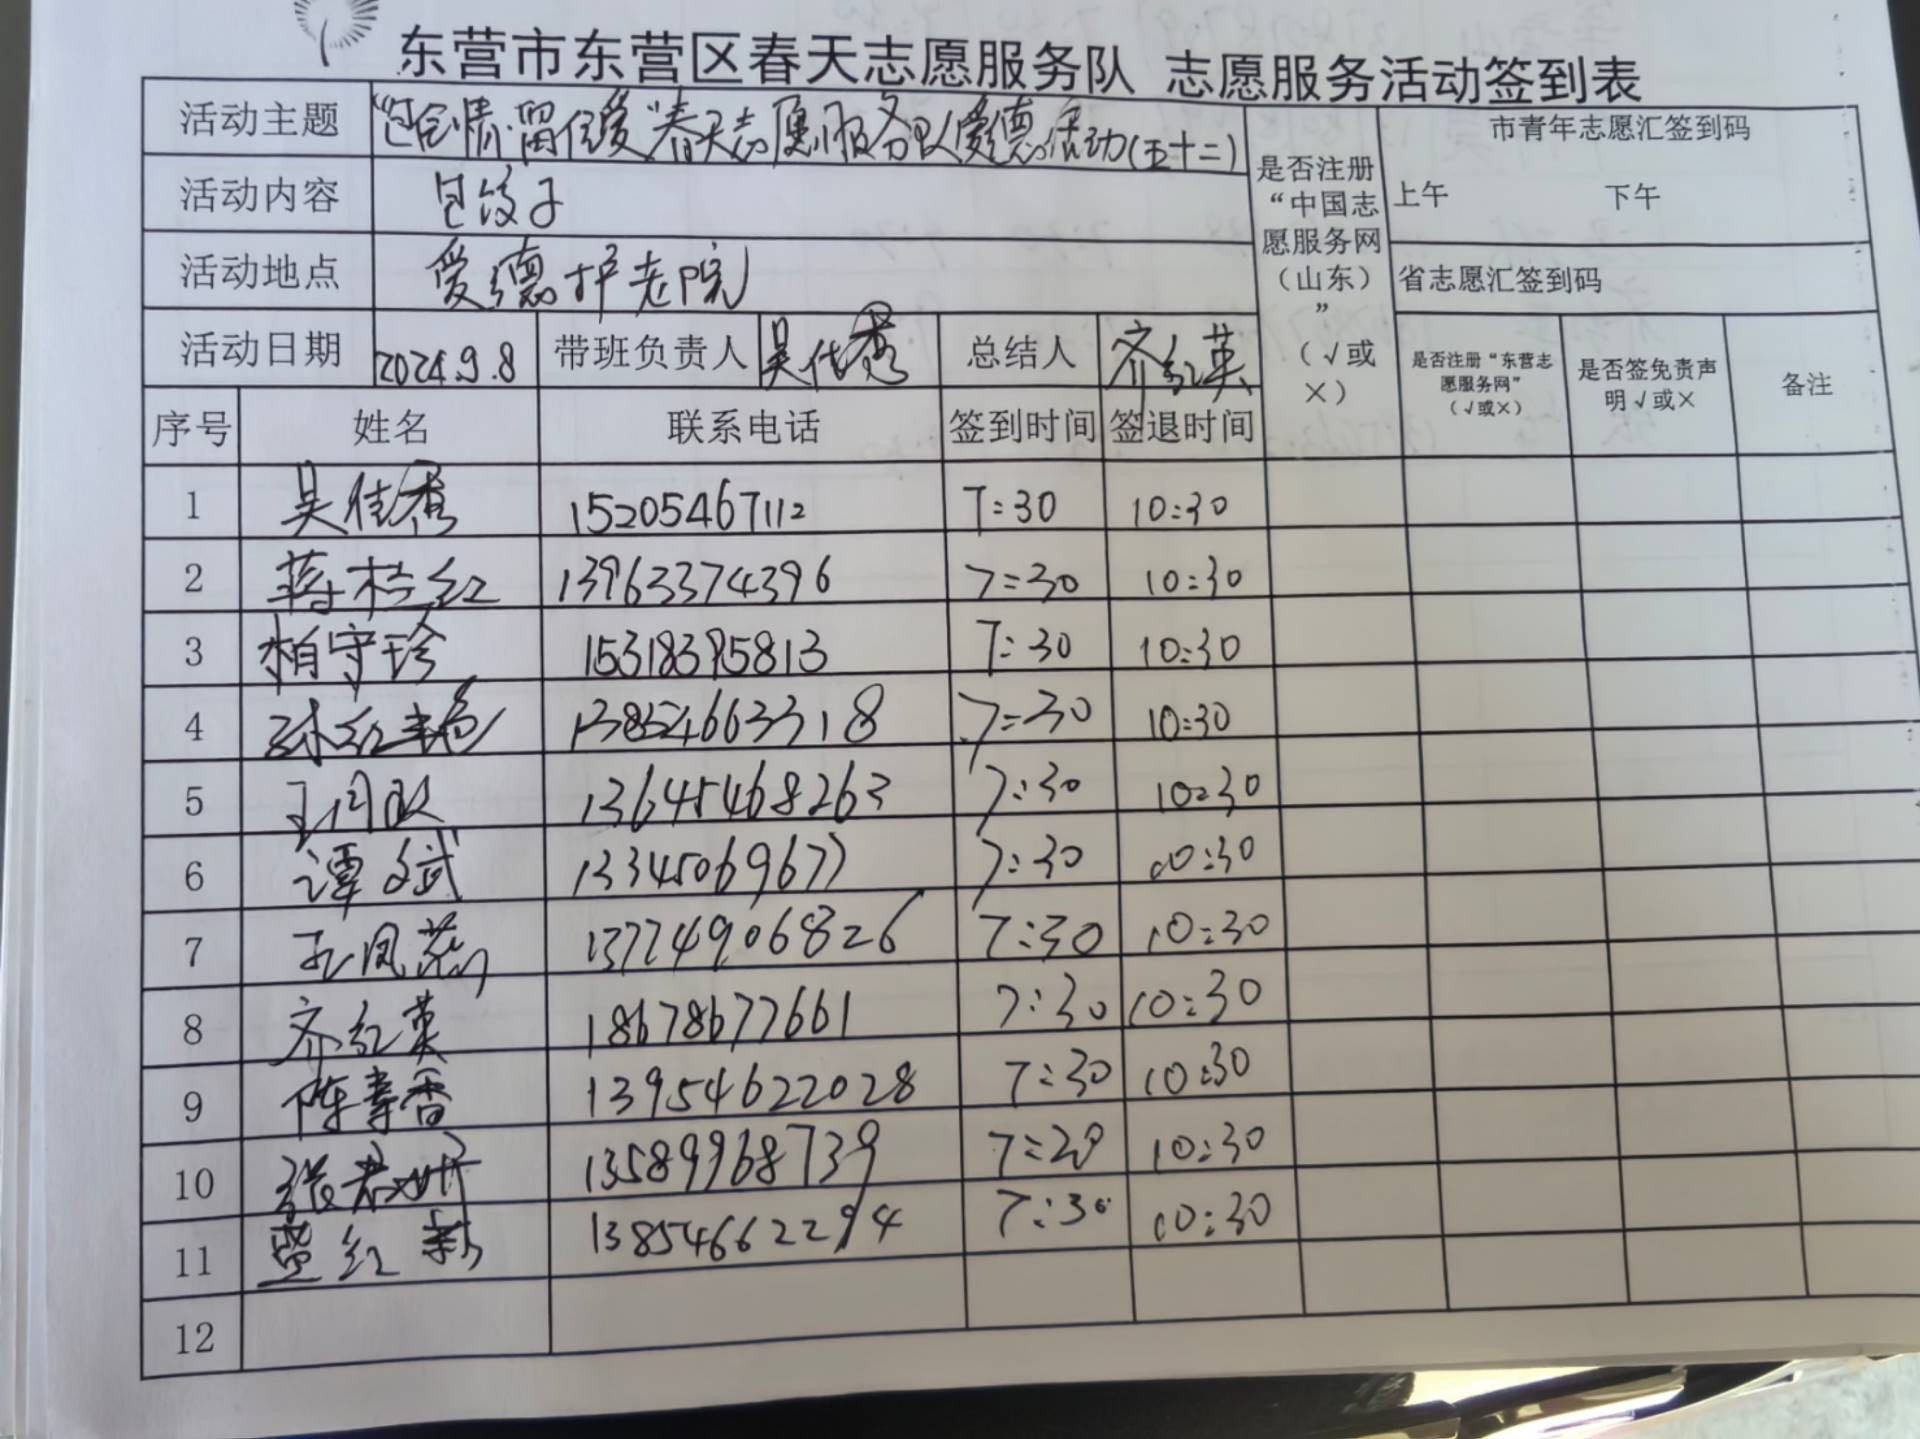 东营市东营区春天志愿服务队 志愿服务活动签到表
活动主题 "包含情·留住爱"春天志愿服务队爱德活动(五十二)
是否注册“中国志愿服务网（山东）”（√或×）
市青年志愿汇签到码
上午 下午
活动内容 包饺子
活动地点 爱德护老院
省志愿汇签到码
活动日期 2024.9.8 带班负责人 吴佳秀 总结人 齐红英
是否注册“东营志愿服务网”（√或×） 是否签免责声明√或× 备注
序号 姓名 联系电话 签到时间 签退时间
1 吴佳秀 15205467112 7:30 10:30
2 蒋桂红 13963374396 7:30 10:30
3 柏守珍 15318395813 7:30 10:30
4 孙红艳 13854663318 7:30 10:30
5 13645468263 7:30 10:30
6 谭文斌 13345069677 7:30 10:30
7 王凤 13774906826 7:30 10:30
8 齐红英 18678677661 7:30 10:30
9 陈春香 13954622028 7:30 10:30
10 张 13589968739 7:20 10:30
11 红新 13854662294 7:30 10:30
12